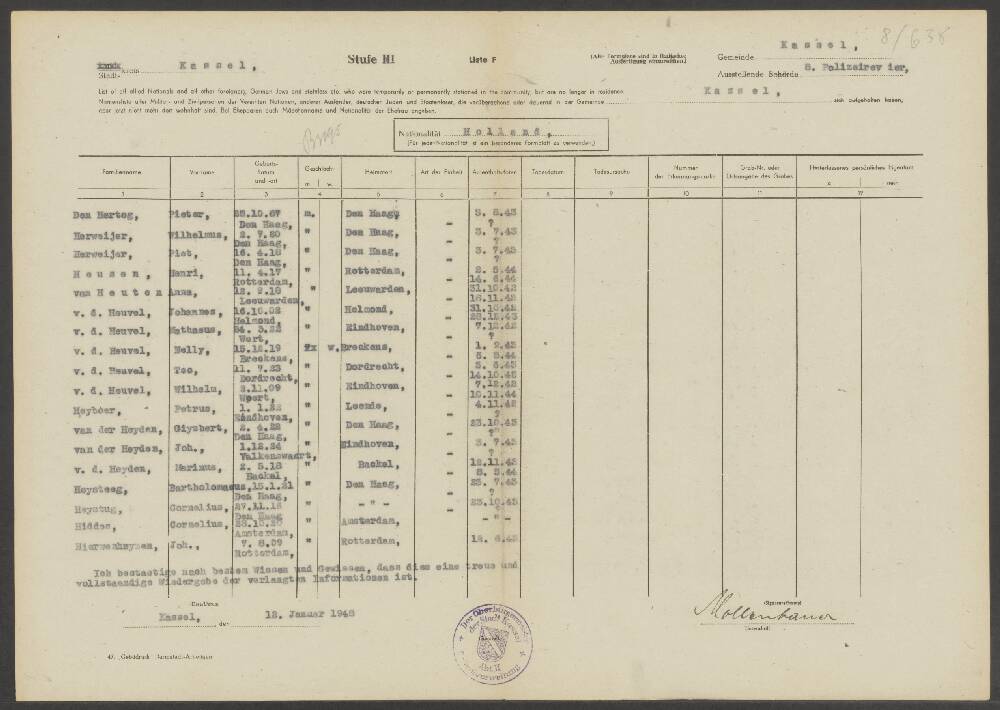 8/638
Kassel,
Stufe III
Liste F
Gemeinde Kassel,
Ausstellende Behörde 8. Polizeirevier,
List of all allied Nationals and all other foreigners, German Jews and stateless etc. who were temporarily or permanently stationed in the community, but are no longer in residence.
Namensliste aller Militär- und Zivilpersonen der Vereinten Nationen, anderer Ausländer, deutscher Juden und Staatenloser, die vorübergehend oder dauernd in der Gemeinde Kassel, sich aufgehalten haben,
aber jetzt nicht mehr dort wohnhaft sind. Bei Ehepaaren auch Mädchenname und Nationalität der Ehefrau angeben.
Nationalität Holland,
(Für jede Nationalität ist ein besonderes Formblatt zu verwenden)
Familienname Vorname Geburtsdatum und -ort Geschlecht m. w. Heimatort Art der Einheit Aufenthaltsdaten Todesdatum Todesursache Nummer der Erkennungsmarke Grab-Nr. oder Ortsangabe des Grabes Hinterlassenes persönliches Eigentum
1 2 3 4 5 6 7 8 9 10 11 12
Den Hertog, Pieter, 25.10.67 m. Den Haag, 3. 8.43
Den Haag, - ?
Herweijer, Wilhelmus, 2. 7.20 " Den Haag, 3. 7.43
Den Haag, - ?
Herweijer, Piet, 16. 4.18 " Den Haag, 3. 7.43
Den Haag, - ?
Heusen, Henri, 11. 4.17 " Rotterdam, 2. 5.44
Rotterdam, - 14. 6.44
van Heuten Anna, 12. 2.18 " Leeuwarden, 31.10.42
Leeuwarden, - 16.11.42
v. d. Heuvel, Johannes, 16.10.02 " Helmond, 31.10.42
Helmond, - 28.12.43
v. d. Heuvel, Mathasus, 24. 3.22 " Eindhoven, 7.12.42
Wert, - ?
v. d. Heuvel, Nelly, 15.12.19 w. Breckens, 1. 2.43
Breckens, - 5. 5.44
v. d. Heuvel, Teo, 11. 7.23 " Dordrecht, 3. 6.43
Dordrecht, - 14.10.43
v. d. Heuvel, Wilhelm, 2.11.09 " Eindhoven, 7.12.42
Weert, - 10.11.44
Heyboer, Petrus, 1. 1.22 " Leende, 4.11.42
Eindhoven, - ?
van der Heyden, Giysbert, 2. 4.22 " Den Haag, 23.10.43
Den Haag, - ?
van der Heyden, Joh., 1.12.24 " Eindhoven, 3. 7.43
Valkenswaart, - ?
v. d. Heyden, Marinus, 2. 5.18 " Backel, 12.11.43
Backel, - 8. 5.44
Heysteeg, Bartholomaeus, 15.1.21 " Den Haag, 23. 7.43
Den Haag, - ?
Heystug, Cornelius, 27.11.16 " - " - 23.10.43
Den Haag - ?
Hiddes, Cornelius, 28.10.20 " Amsterdam, - " -
Amsterdam,
Hierwenhuyzen, Joh., 7. 8.09 " Rotterdam, 12. 6.43
Rotterdam,
Ich bestaetige nach bestem Wissen und Gewissen, dass dies eine treue und
vollstaendige Wiedergabe der verlangten Informationen ist.
Kassel, den 12. Januar 1948
Mollenhauer
Der Oberbürgermeister der Stadt Kassel